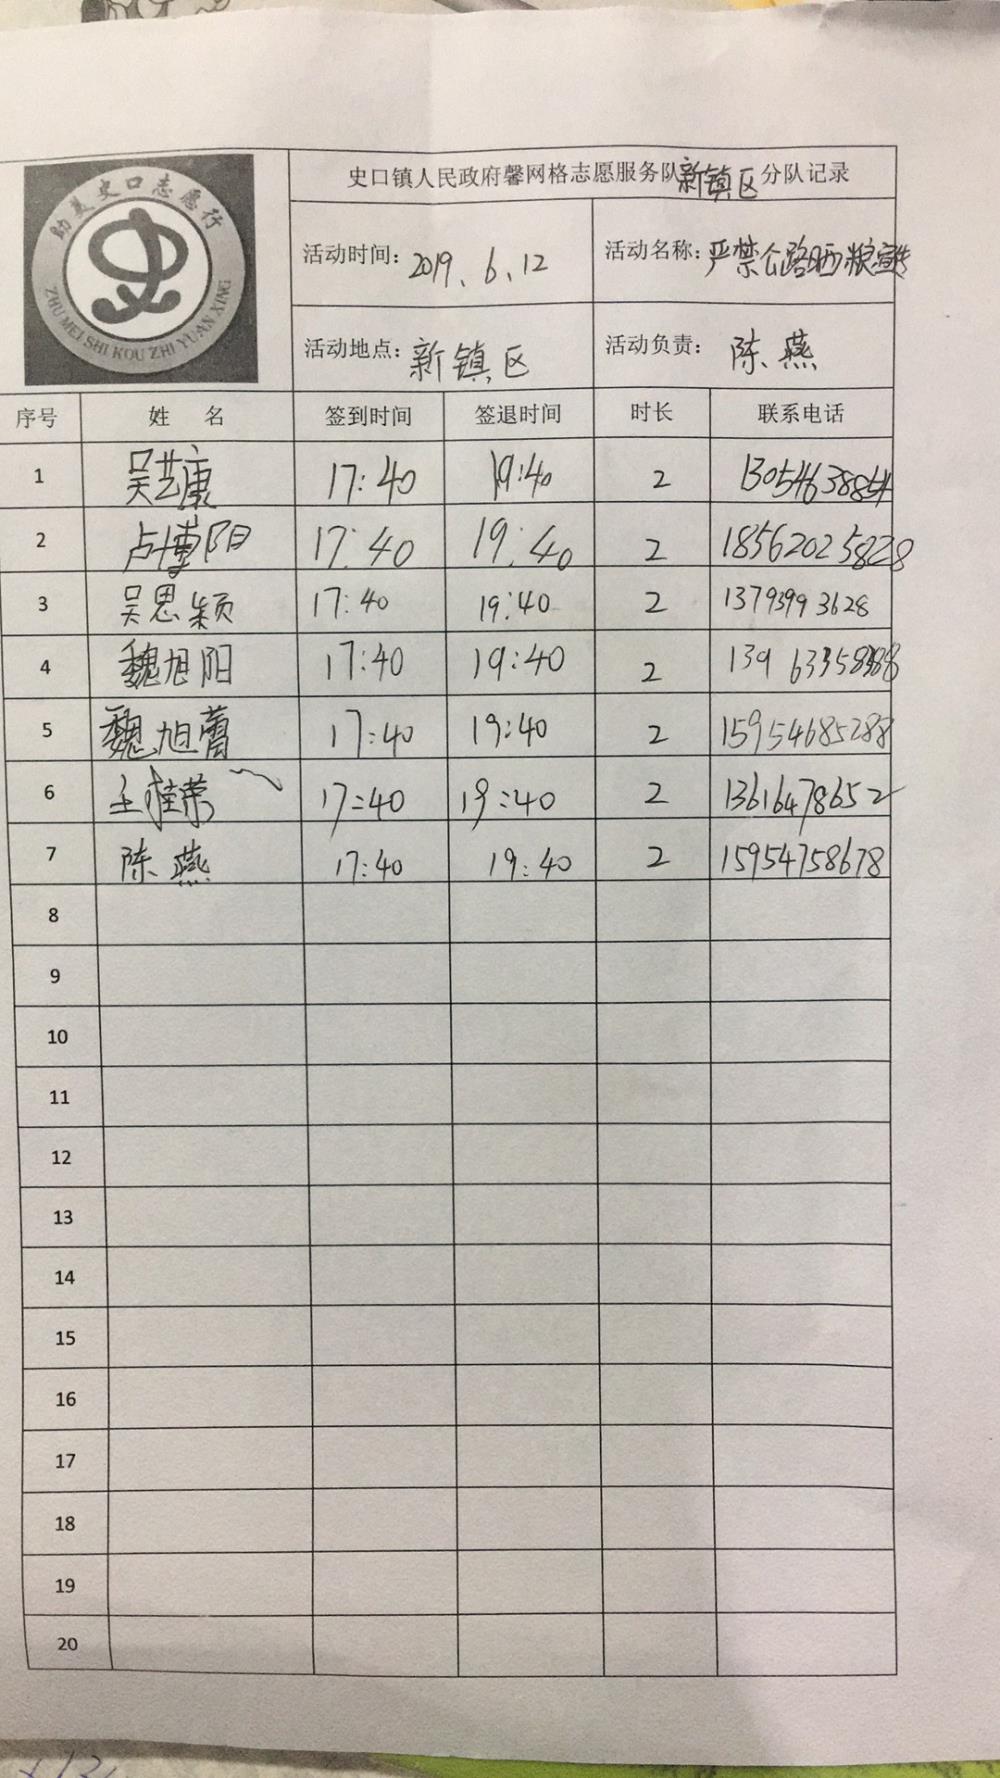 助美史口志愿行
ZHU MEI SHI KOU ZHI YUAN XING
史口镇人民政府馨网格志愿服务队新镇区分队记录
活动时间：2019.6.12 活动名称：严禁公路晒粮宣传
活动地点：新镇区 活动负责：陈燕
序号 姓 名 签到时间 签退时间 时长 联系电话
1 吴艺康 17:40 19:40 2
2 卢博阳 17:40 19:40 2 18562025828
3 吴思颖 17:40 19:40 2 13793993628
4 魏旭阳 17:40 19:40 2
5 魏旭蕾 17:40 19:40 2 15954685288
6 王桂荣 17:40 19:40 2 13616478652
7 陈燕 17:40 19:40 2 15954758678
8
9
10
11
12
13
14
15
16
17
18
19
20